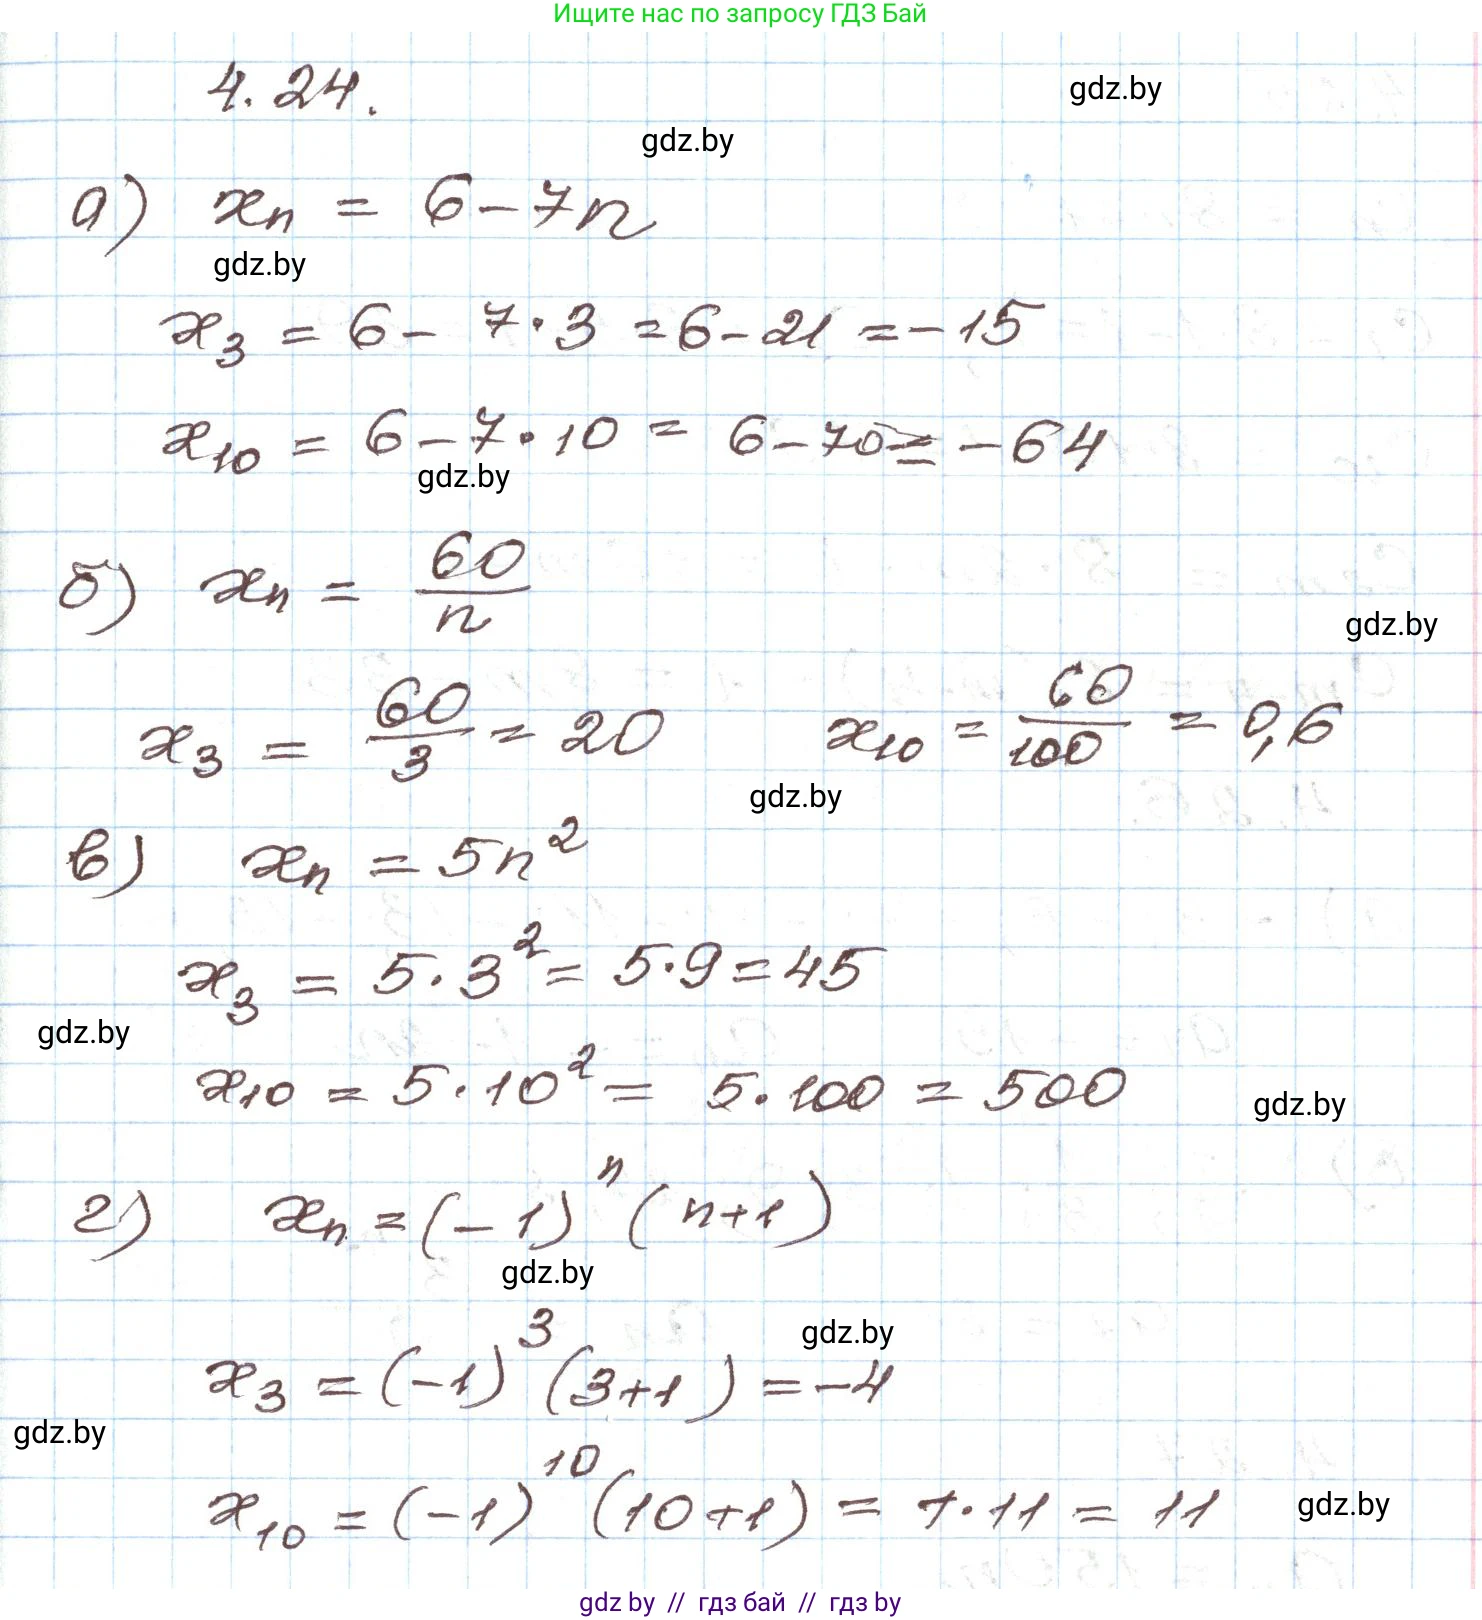 Ищите нас по запросу ГДЗ Бай
4.24.
gdz.by
gdz.by
а) xₙ = 6 - 7n
gdz.by
x₃ = 6 - 7·3 = 6 - 21 = -15
x₁₀ = 6 - 7·10 = 6 - 70 = -64
gdz.by
б) xₙ = 60/n
gdz.by
x₃ = 60/3 = 20 x₁₀ = 60/100 = 0,6
gdz.by
в) xₙ = 5n²
x₃ = 5·3² = 5·9 = 45
gdz.by
x₁₀ = 5·10² = 5·100 = 500
gdz.by
г) xₙ = (-1)ⁿ (n+1)
gdz.by
gdz.by
x₃ = (-1)³ (3+1) = -4
gdz.by
x₁₀ = (-1)¹⁰ (10+1) = 1·11 = 11
gdz.by
gdz.by // гдз бай // гдз by